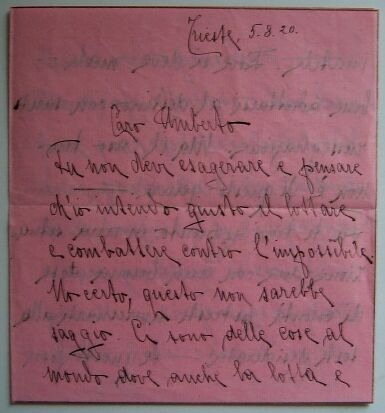 Trieste, 5.8.20.
Caro Umberto
Tu non devi esagerare e pensare
ch'io intendo giusto il lottare
e combattere contro l'impossibile.
No certo, questo non sarebbe
saggio. Ci sono delle cose al
mondo dove anche la lotta e